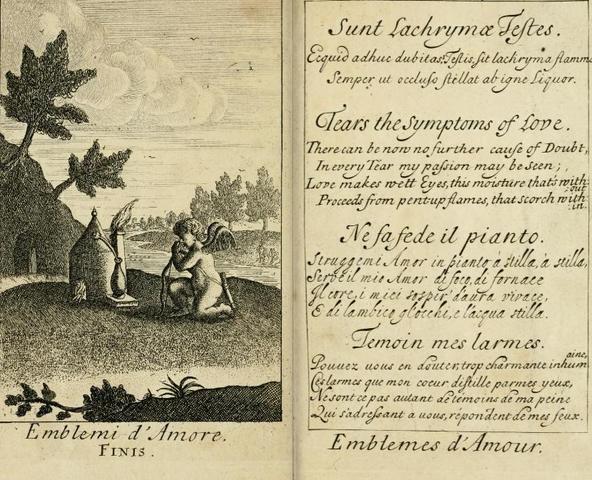 Emblemi d'Amore.
FINIS.
Sunt Lachrymæ Teſtes.
Ecquid adhuc dubitas, Teſtis, ſit lachryma flammæ
Semper ut occluſo ſtillat ab igne Liquor.
Tears the Symptoms of Love.
There can be now no further cause of Doubt,
In every Tear my paſsion may be seen;
Love makes wett Eyes, this moisture that's with:out
Proceeds from pentup flames, that scorch with:in.
Ne fa fede il pianto.
Struggemi Amor in pianto à stilla, à stilla,
Serve il mio Amor di foco, di fornace
Il core, i miei soſpir' d'aura vivace,
E di lambico gl'occhi, e l'acqua stilla.
Temoin mes larmes.
Pouvez vous en douter, trop charmante inhumaine,
Ces larmes que mon coeur diſtille par mes yeux,
Ne sont ce pas autant de témoins de ma peine
Qui s'adreſsant a vous, répondent de mes feux.
Emblemes d'Amour.